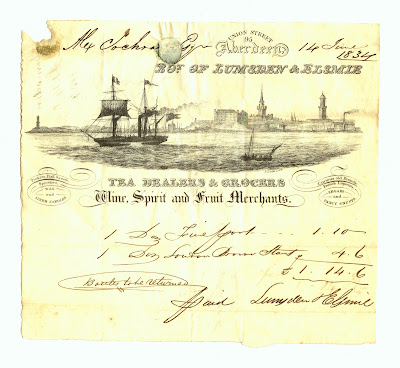 UNION STREET
95
Aberdeen 14 June 1834
Esqr
BOT. OF LUMSDEN & ELSMIE
TEA DEALERS & GROCERS
Wine, Spirit and Fruit Merchants.
WAX and
and
1 Doz Fine Port 1. 10
1 Doz London Brown Stout, 4.6
£ 1. 14. 6
Bottles to be returned
Paid Lumsden & Elsmie